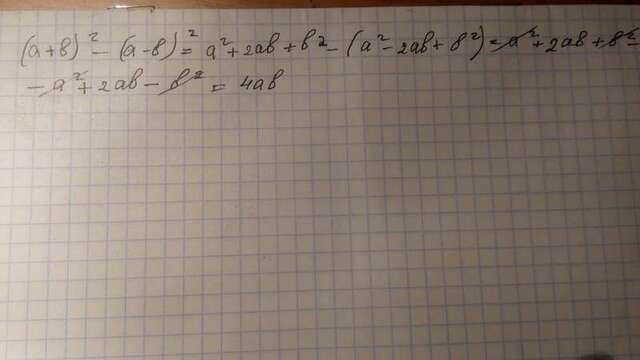 (a+b)² - (a-b)² = a² + 2ab + b² - (a² - 2ab + b²) = a² + 2ab + b² -
- a² + 2ab - b² = 4ab